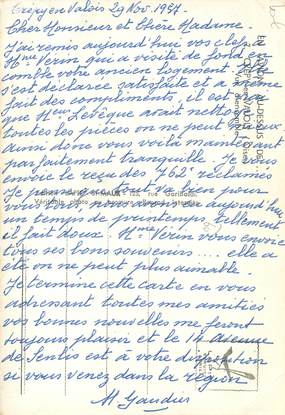 Crépy en Valois 29 Nov. 1957.
Cher Monsieur et Chère Madame.
J'ai remis aujourd'hui vos clefs à
Mme Verin, qui a visité de fond en
comble votre ancien logement. Elle
s'est déclarée satisfaite et a même
fait des compliments, il est vrai
que Mme Levêque avait nettoyé
toutes les pièces on ne peut mieux
aussi donc vous voilà maintenant
parfaitement tranquille. Je vous
envoie le reçu des 762 réclamés
Je pense que tout va bien pour
vous aujourd'hui
un temps de printemps, tellement
il fait doux. Mme Verin vous envoie
tous ses bons souvenirs.... elle a
été on ne peut plus aimable.
Je termine cette carte en vous
adressant toutes mes amitiés
vos bonnes nouvelles me feront
toujours plaisir et le 14 avenue
de Senlis est à votre disposition
si vous venez dans la région
M Gaudier
CRÉPY-en-VALOIS (Oise)